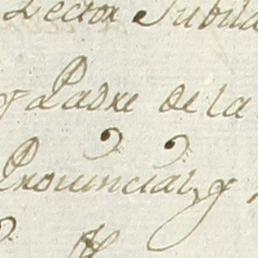 Lector Jubila
y Padre de la
Prouincial, y